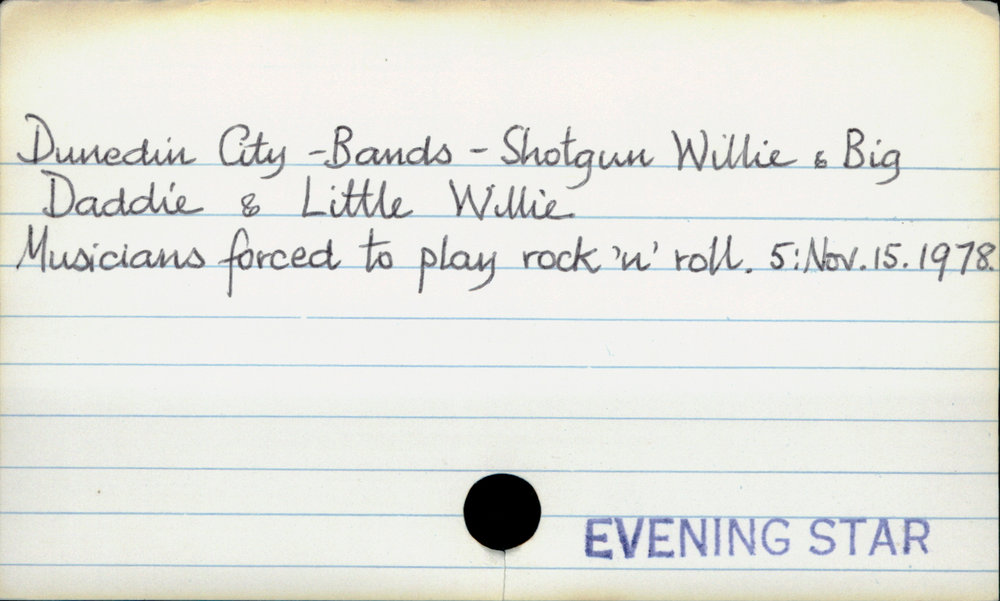 Dunedin City - Bands - Shotgun Willie & Big
Daddie & Little Willie
Musicians forced to play rock 'n' roll. 5: Nov. 15. 1978.
EVENING STAR